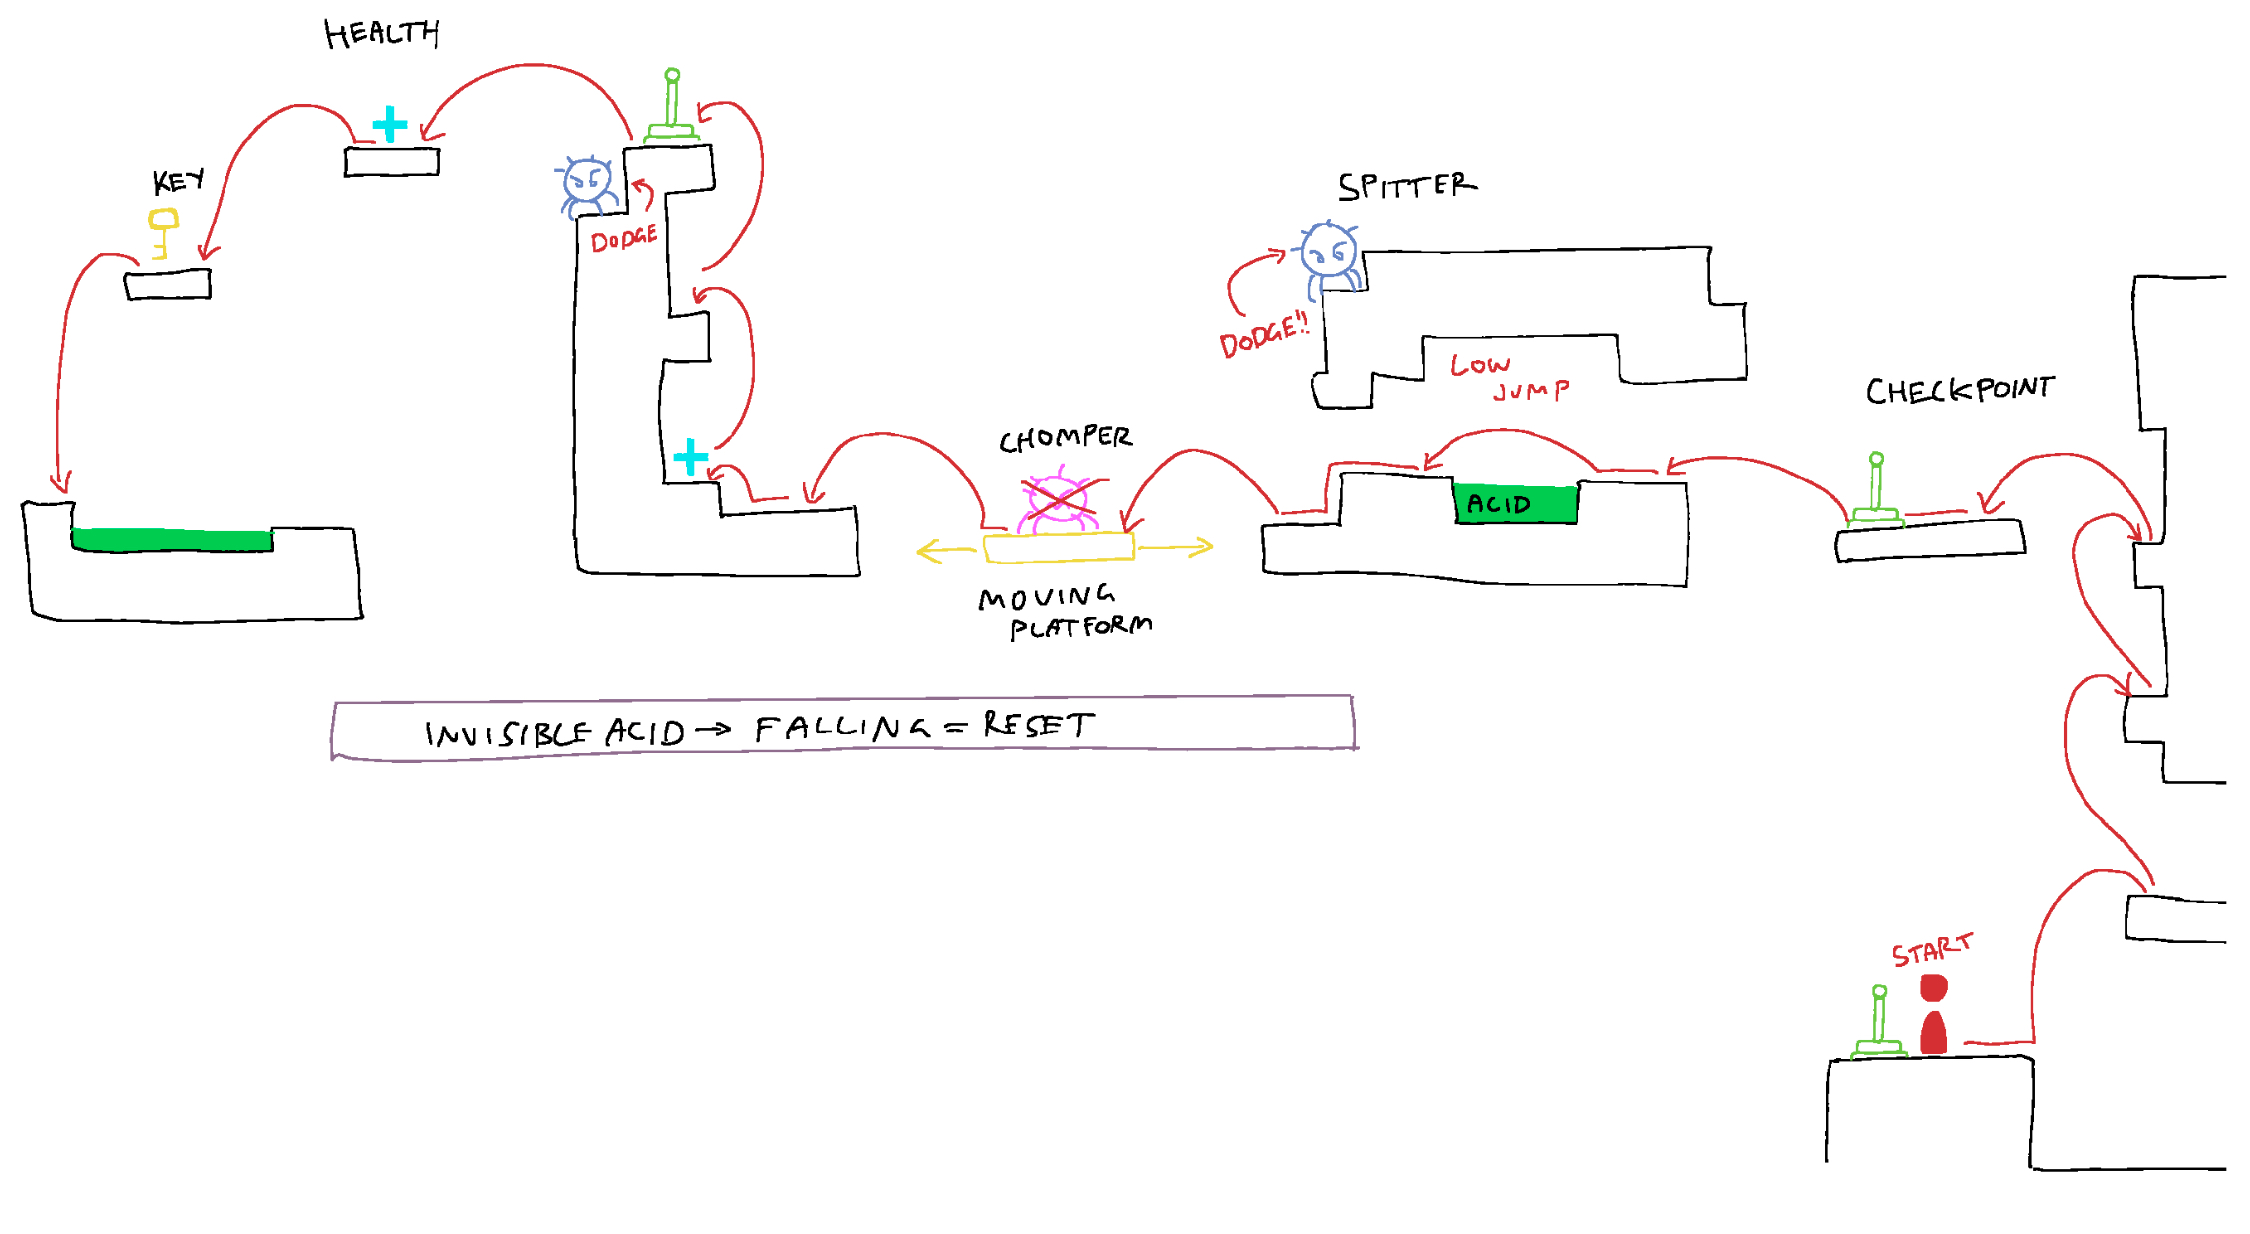 HEALTH
KEY
DODGE
SPITTER
DODGE!!
LOW
JUMP
CHECKPOINT
CHOMPER
ACID
MOVING
PLATFORM
INVISIBLE ACID → FALLING = RESET
START